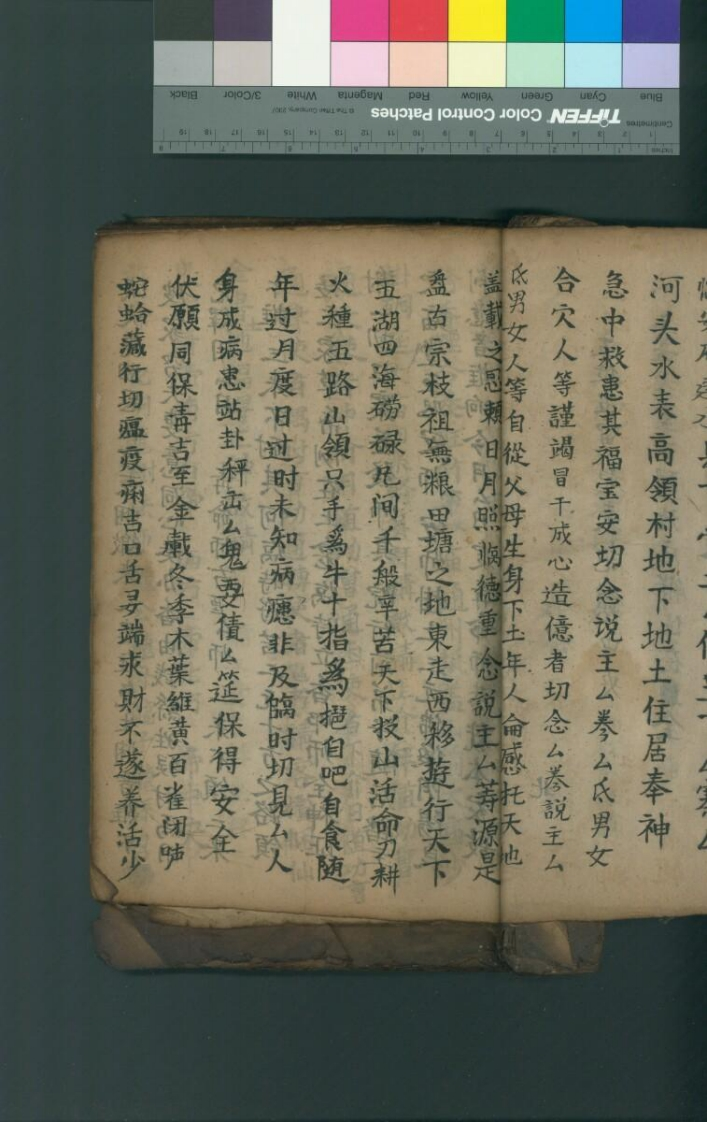 Blue Cyan Green Yellow Red Magenta White 3/Color Black
TIFFEN Color Control Patches © The Tiffen Company, 2007
Centimetres
河头水表高領村地下地土住居奉神
急中救患其福宝安切念说主厶蓁厶氏男女
合穴人等謹謁冒干成心造億者切念厶蓁説主厶
氏男女人等自從父母生身下土年人侖感托天地
盖載之恩賴日月照臨德重念説主厶等源是
盘古宗枝祖無粮田塘之地東走西移遊行天下
五湖四海磱碌凡间千般辛苦天下投山活命刀耕
火種五路山領只手爲牛十指爲挹自吧自食随
年过月度日过时未知病癔非及臨时切見厶人
身成病患站卦秤出厶鬼要債厶筵保得安全
伏願同保青吉至金戴冬季木葉維黄百雀闭声
蛇蛤藏行切瘟疫痢吉口舌晏端求財不遂养活少